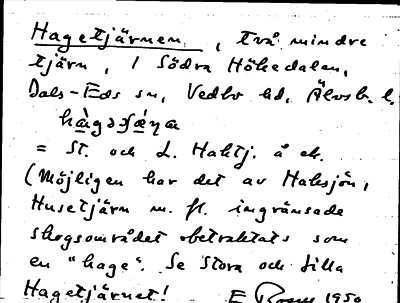 Hagetjärnen, två mindre
tjärn, i Södra Hökedalen,
Dals-Eds sn, Vedbo hd, Älvsb. l.
= St. och L. Haktj. å ek.
(Möjligen har det av Haksjön,
Husetjärn m. fl. ingränsade
skogsområdet betraktats som
en "hage". Se Stora och Lilla
Hagetjärnet! E 1950